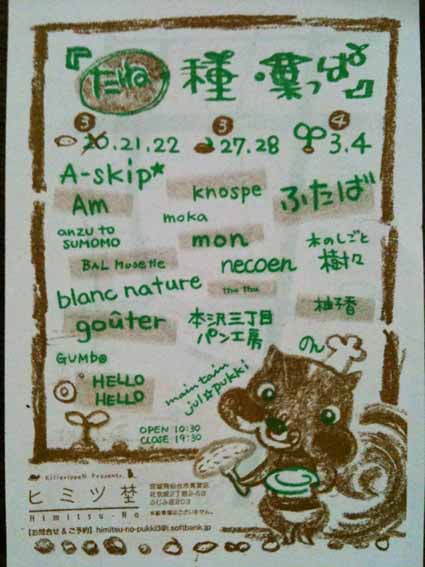 『たね 種 ・葉っぱ』
③ ③ ④
20.21.22 27.28 3.4
A-skip★
Am
knospe
ふたば
moka
anzu to
SUMOMO
mon
木のしごと
樹々
BAL Musette
necoen
blanc nature
thu thu
柚子香
goûter
本沢三丁目
パン工房
のん
GUMBO
HELLO
HELLO
maintain
jul☆pukki
OPEN 10:30
CLOSE 19:30
Presents.
ヒミツ埜
Himitsu-No
宮城県仙台市青葉区
ふじみ荘203
【お問合せ & ご予約】himitsu-no-pukki3@i.softbank.jp